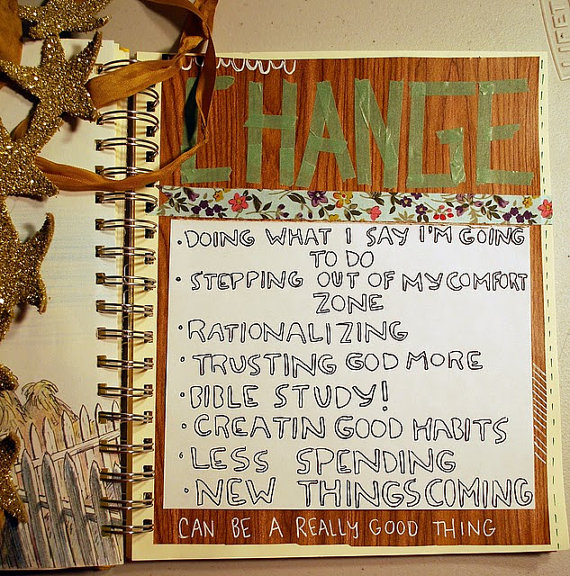 CHANGE
·DOING WHAT I SAY I'M GOING
TO DO
·STEPPING OUT OF MY COMFORT
ZONE
·RATIONALIZING
·TRUSTING GOD MORE
·BIBLE STUDY!
·CREATIN GOOD HABITS
·LESS SPENDING
·NEW THINGS COMING
CAN BE A REALLY GOOD THING